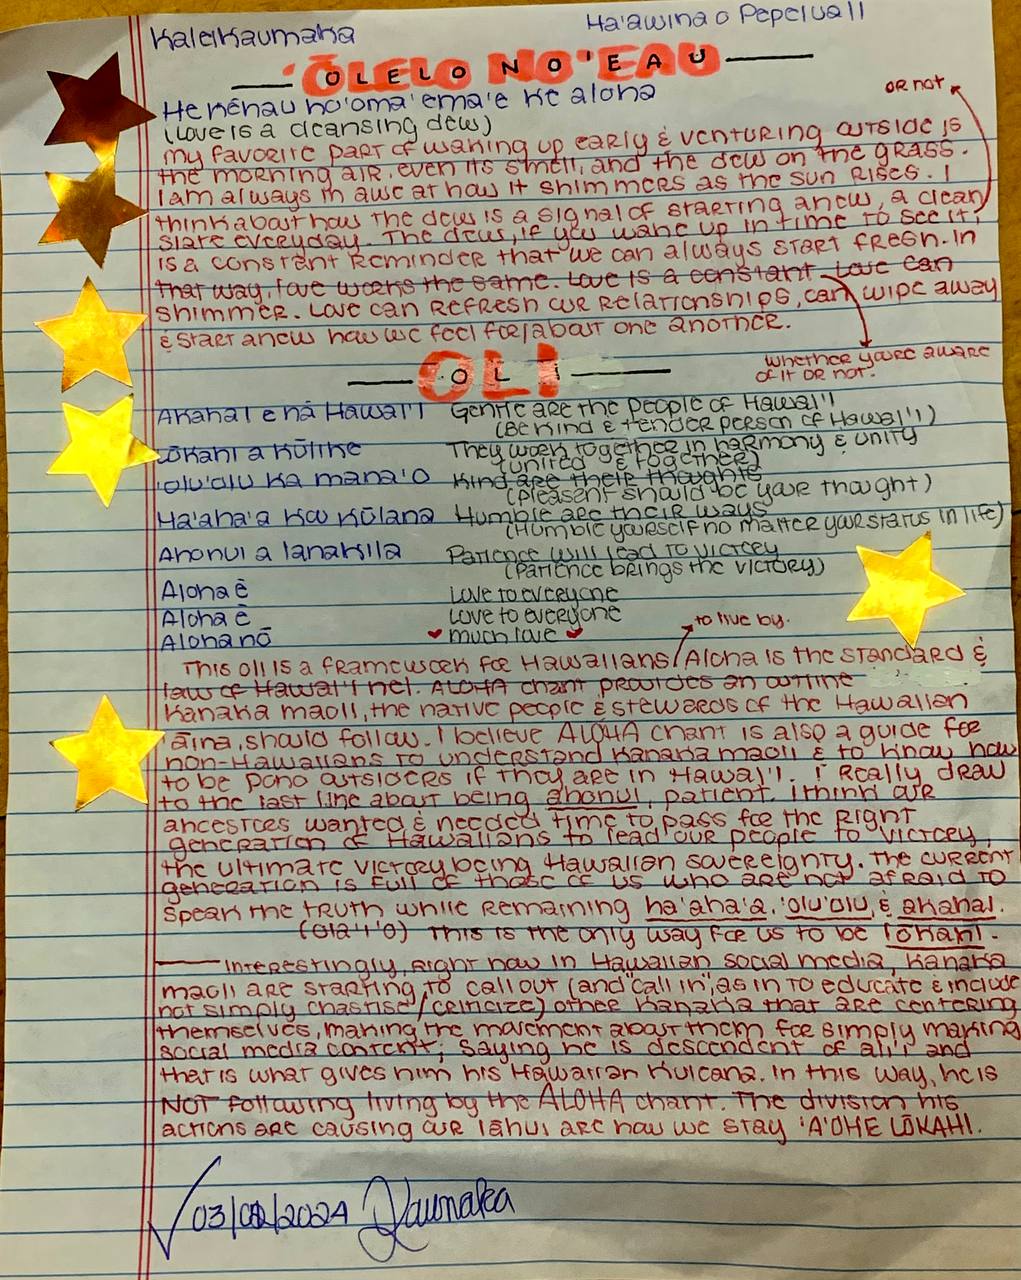 Kaleikaumaka
Ha'awina o Pepeluali
'ŌLELO NO'EAU
He kēhau ho'oma'ema'e ke aloha
(Love is a cleansing dew)
or not
my favorite part of waking up early & venturing outside is
the morning air, even its smell, and the dew on the grass.
I am always in awe at how it shimmers as the sun rises. I
think about how the dew is a signal of starting anew, a clean
slate everyday. The dew, if you wake up in time to see it,
is a constant reminder that we can always start fresh. In
that way, love works the same. Love is a constant. Love can
shimmer. Love can refresh our relationships, can wipe away
& start anew how we feel for/about one another.
whether you're aware
of it or not.
OLI
Akahai e nā Hawai'i Gentle are the people of Hawai'i
(Be kind & tender person of Hawai'i)
Lōkahi a kūlike They work together in harmony & unity
(united & together)
'olu'olu ka mana'o Kind are their thoughts
(pleasent should be your thought)
Ha'aha'a kou kūlana Humble are their ways
(Humble yourself no matter your status in life)
Ahonui a lanakila Patience will lead to victory
(Patience brings the victory)
Aloha ē Love to everyone
Aloha ē Love to everyone
Aloha nō much love
to live by.
This oli is a framework for Hawaiians / Aloha is the standard &
law of Hawai'i nei. ALOHA chant provides an outline
kanaka maoli, the native people & stewards of the Hawaiian
'āina, should follow. I believe ALOHA chant is also a guide for
non-Hawaiians to understand kanaka maoli & to know how
to be pono outsiders if they are in Hawai'i. I really draw
to the last line about being ahonui, patient. I think our
ancestors wanted & needed time to pass for the right
generation of Hawaiians to lead our people to victory,
the ultimate victory being Hawaiian sovereignty. The current
generation is full of those of us who are not afraid to
speak the truth while remaining ha'aha'a, 'olu'olu, & akahai.
(ola'i'o) This is the only way for us to be lōkahi.
Interestingly, right now in Hawaiian social media, kanaka
maoli are starting to call out (and "call in", as in to educate & include
not simply chastise/criticize) other kanaka that are centering
themselves, making the movement about them for simply making
social media content; saying he is descendent of ali'i and
that is what gives him his Hawaiian kuleana. In this way, he is
NOT following living by the ALOHA chant. The division his
actions are causing our lāhui are how we stay 'A'OHE LŌKAHI.
03/02/2024 Kaumaka